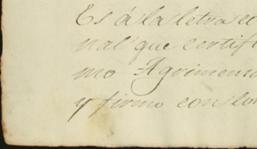 Es á la letra el
nal que certifi
mo Agrimenso
y firmo con los